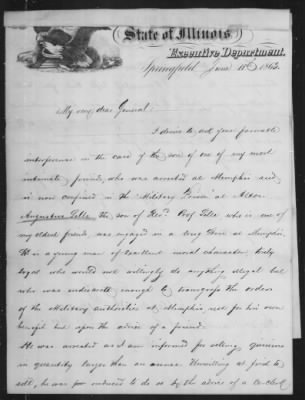 State of Illinois
Executive Department.
Springfield June 10th 1863.
My very dear General
I desire to ask your favorable
interference in the case of the son of one of my most
intimate friends, who was arrested at Memphis and
is now confined in the "Military Prison" at Alton
Augustus the son of Revd. Prof who is one of
my oldest friends, was engaged in a Drug Store at Memphis.
He is a young man of excellent moral character, truly
loyal who would not willingly do anything illegal but
who was indiscreet enough to transgress the orders
of the Military authorities at Memphis, not for his own
benefit but upon the advice of a friend.
He was arrested as I am informed for selling quinine
in quantity larger than an ounce. Unwilling at first to
sell, he was induced to do so by the advice of a co-clerk